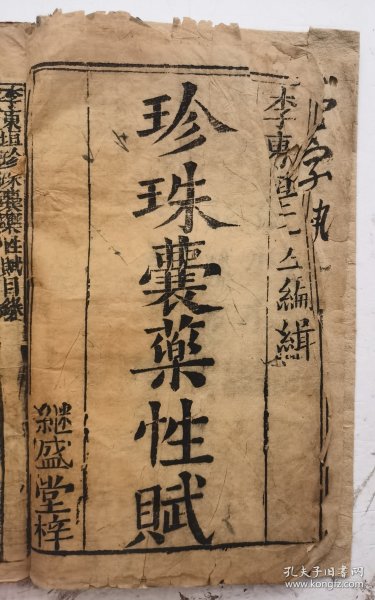 李東垣先生編緝
珍珠囊藥性賦
継盛堂梓
李東垣珍珠囊藥性賦目錄
孔夫子旧书网
www.kongfz.com